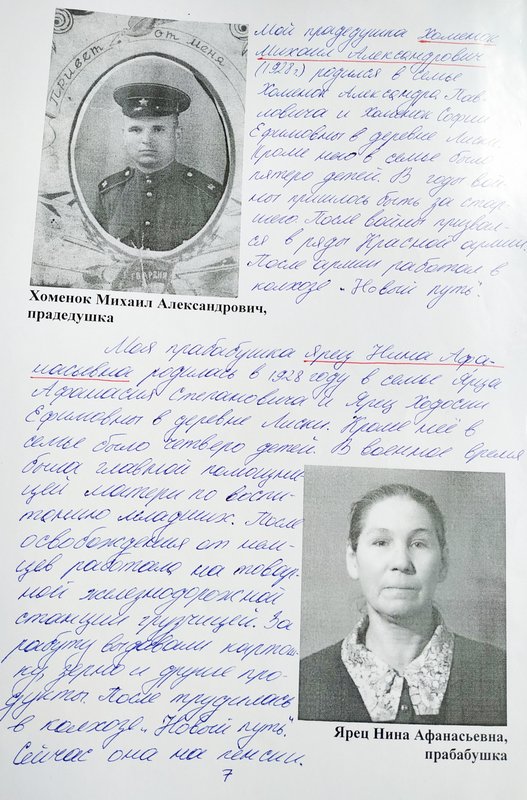 Привет от меня
Мой прадедушка Хоменок
Михаил Александрович
(1928г) родился в семье
Хоменок Александра Пав-
ловича и Хоменок Софии
Ефимовны в деревне Лиски.
Кроме него в семье было
пятеро детей. В годы вой-
ны пришлось быть за стар-
шего. После войны призвал-
ся в ряды Красной армии.
После армии работал в
колхозе „Новый путь".
Хоменок Михаил Александрович,
прадедушка
Моя прабабушка Ярец Нина Афа-
насьевна родилась в 1928 году в семье Ярца
Афанасия Степановича и Ярец Ходосии
Ефимовны в деревне Лиски. Кроме неё в
семье было четверо детей. В военное время
была главной помощни-
цей матери по воспи-
танию младших. После
освобождения от нем-
цев работала на товар-
ной железнодорожной
станции грузчицей. За
работу выдавали картош-
ку, зерно и другие про-
дукты. После трудилась
в колхозе „Новый путь".
Сейчас она на пенсии.
Ярец Нина Афанасьевна,
прабабушка
7